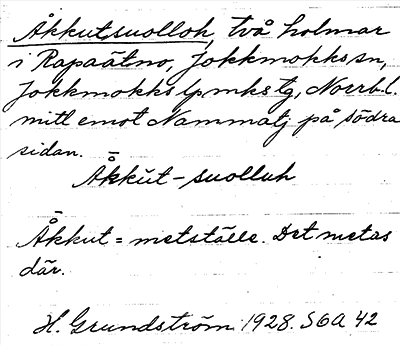 Åkkutsuolloh, två holmar
i Rapaätno, Jokkmokks sn,
Jokkmokks lpmks tg, Norrb. l.
mitt emot Nammatj på södra
sidan.
Åkkŭt-suolluh
Åkkut = metställe. Det metas
där.
H. Grundström 1928. SOA 42